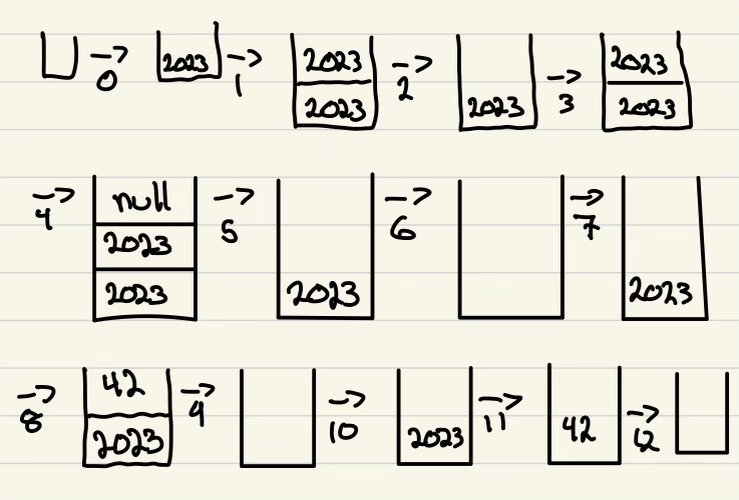 2023 2023 2023
0 2023 1 2023 2 2023 3 2023
4 null 2023 2023 5 2023 6 7 2023
8 42 2023 9 10 2023 11 42 12